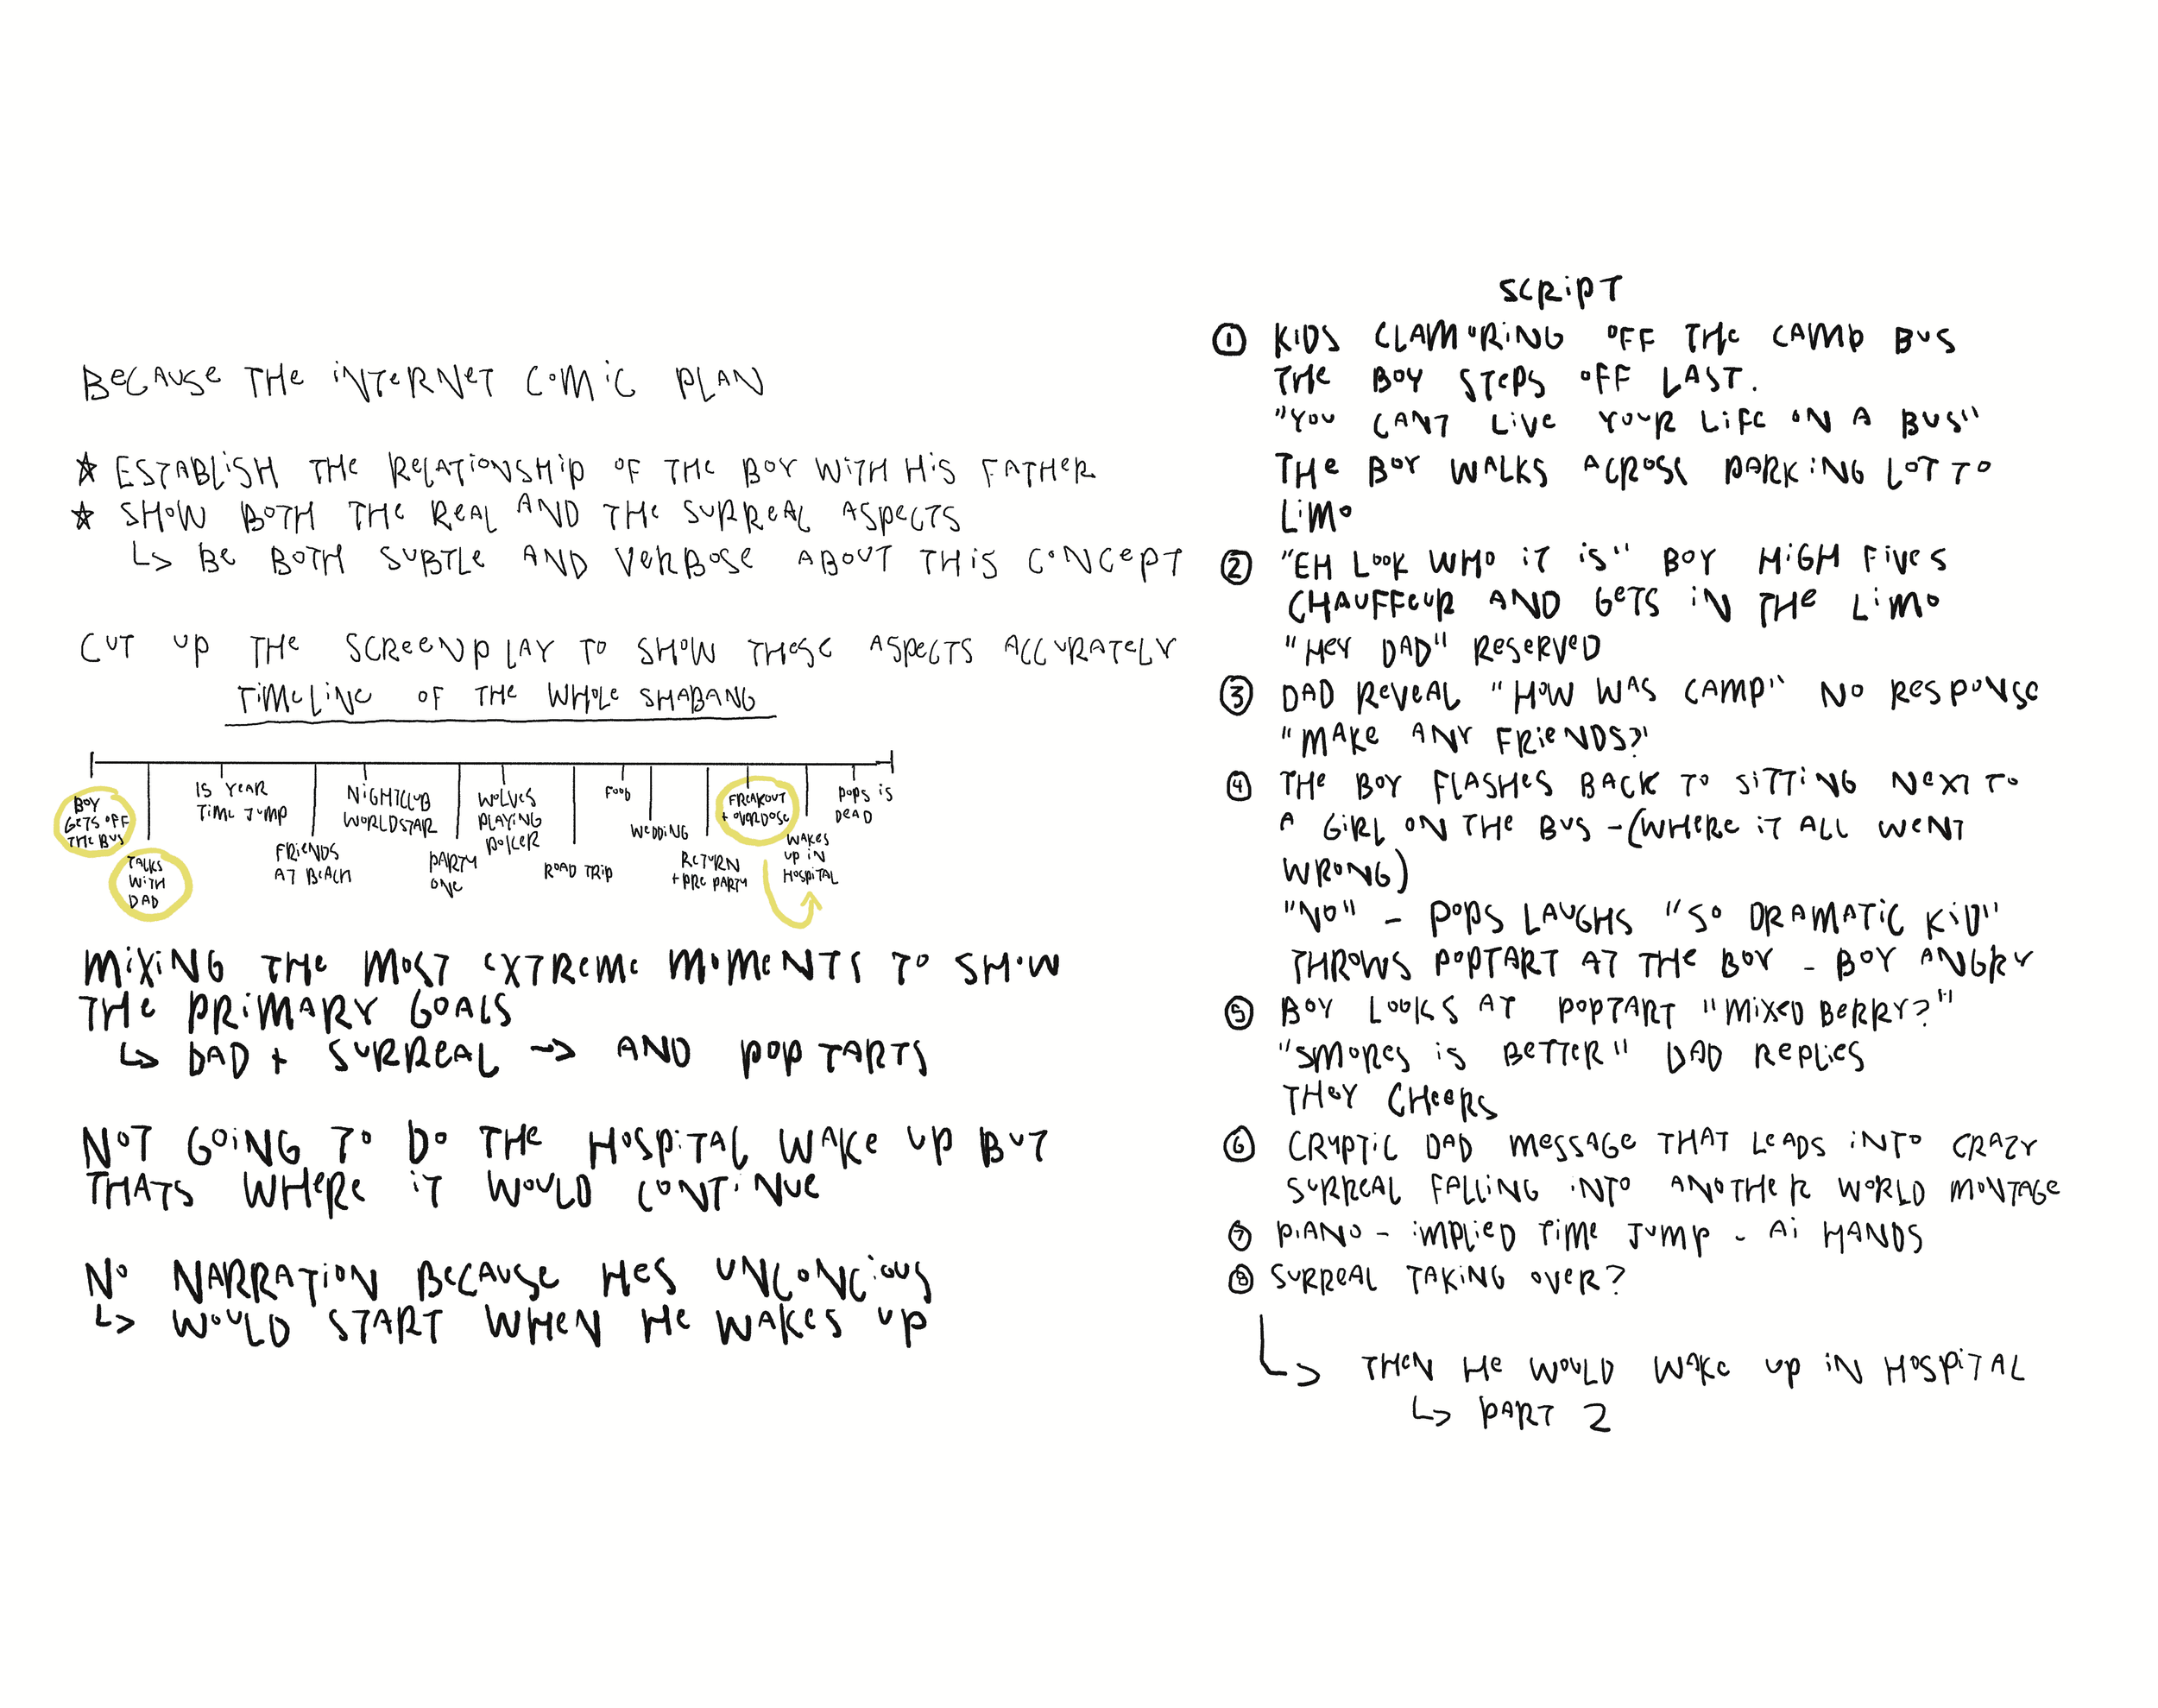 BECAUSE THE INTERNET COMIC PLAN
★ ESTABLISH THE RELATIONSHIP OF THE BOY WITH HIS FATHER
★ SHOW BOTH THE REAL AND THE SURREAL ASPECTS
↳ BE BOTH SUBTLE AND VERBOSE ABOUT THIS CONCEPT
CUT UP THE SCREENPLAY TO SHOW THESE ASPECTS ACCURATELY
TIMELINE OF THE WHOLE SHABANG
BOY
GETS OFF
THE BUS
TALKS
WITH
DAD
15 YEAR
TIME JUMP
FRIENDS
AT BEACH
NIGHTCLUB
WORLDSTAR
PARTY
ONE
WOLVES
PLAYING
POKER
ROAD TRIP
FOOD
WEDDING
RETURN
+ PRE PARTY
FREAKOUT
+ OVERDOSE
WAKES
UP IN
HOSPITAL
POPS IS
DEAD
MIXING THE MOST EXTREME MOMENTS TO SHOW
THE PRIMARY GOALS
↳ DAD + SURREAL → AND POP TARTS
NOT GOING TO DO THE HOSPITAL WAKE UP BUT
THATS WHERE IT WOULD CONTINUE
NO NARRATION BECAUSE HES UNCONCIOUS
↳ WOULD START WHEN HE WAKES UP
SCRIPT
① KIDS CLAMORING OFF THE CAMP BUS
THE BOY STEPS OFF LAST.
"YOU CANT LIVE YOUR LIFE ON A BUS"
THE BOY WALKS ACROSS PARKING LOT TO
LIMO
② "EH LOOK WHO IT IS" BOY HIGH FIVES
CHAUFFEUR AND GETS IN THE LIMO
"HEY DAD" RESERVED
③ DAD REVEAL "HOW WAS CAMP" NO RESPONSE
"MAKE ANY FRIENDS?"
④ THE BOY FLASHES BACK TO SITTING NEXT TO
A GIRL ON THE BUS - (WHERE IT ALL WENT
WRONG)
"NO" - POPS LAUGHS "SO DRAMATIC KID"
THROWS POPTART AT THE BOY - BOY ANGRY
⑤ BOY LOOKS AT POPTART "MIXED BERRY?"
"SMORES IS BETTER" DAD REPLIES
THEY CHEERS
⑥ CRYPTIC DAD MESSAGE THAT LEADS INTO CRAZY
SURREAL FALLING INTO ANOTHER WORLD MONTAGE
⑦ PIANO - IMPLIED TIME JUMP - AI HANDS
⑧ SURREAL TAKING OVER?
↳ THEN HE WOULD WAKE UP IN HOSPITAL
↳ PART 2